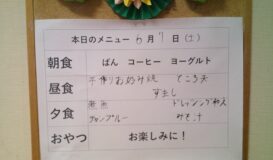 本日のメニュー 6月7日(土)
朝食 ぱん コーヒー ヨーグルト
昼食 手作りお好み焼 ところ天
すまし
夕食 煮魚 ドレッシング和え
チャンプルー みそ汁
おやつ お楽しみに!